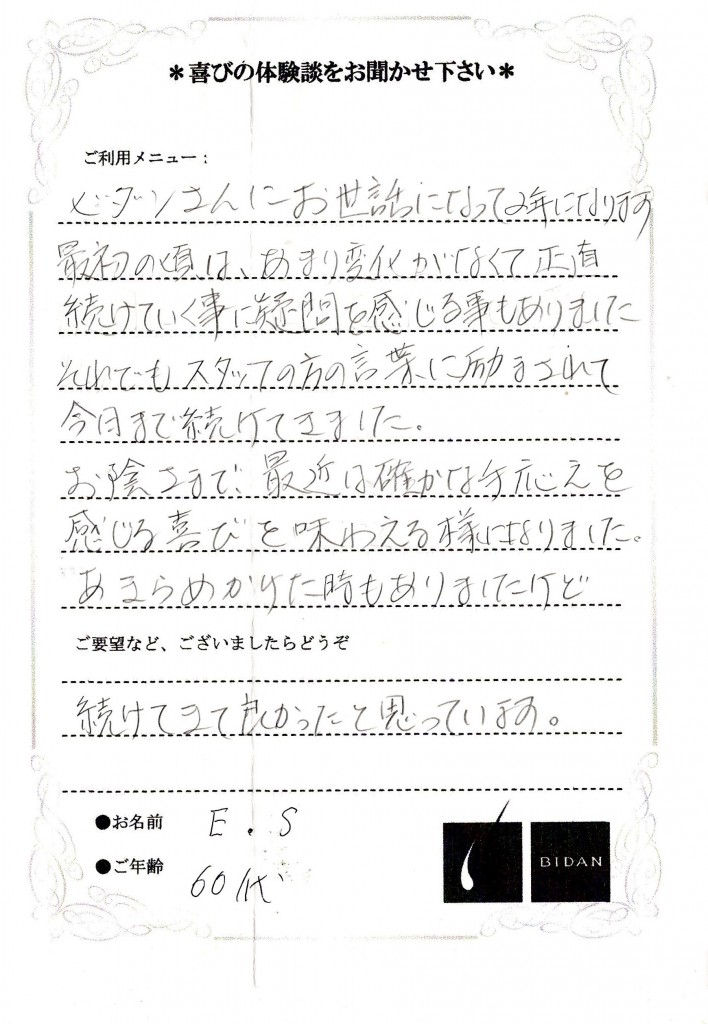 ＊喜びの体験談をお聞かせ下さい＊
ご利用メニュー：
ビダンさんにお世話になって2年になります
最初の頃は、あまり変化がなくて正直
続けていく事に疑問を感じる事もありました
それでもスタッフの方の言葉に励まされて
今日まで続けてきました。
お陰さまで、最近は確かな手応えを
感じる喜びを味わえる様になりました。
あきらめかけた時もありましたけど
ご要望など、ございましたらどうぞ
続けてきて良かったと思っています。
●お名前 E.S
●ご年齢 60代
BIDAN